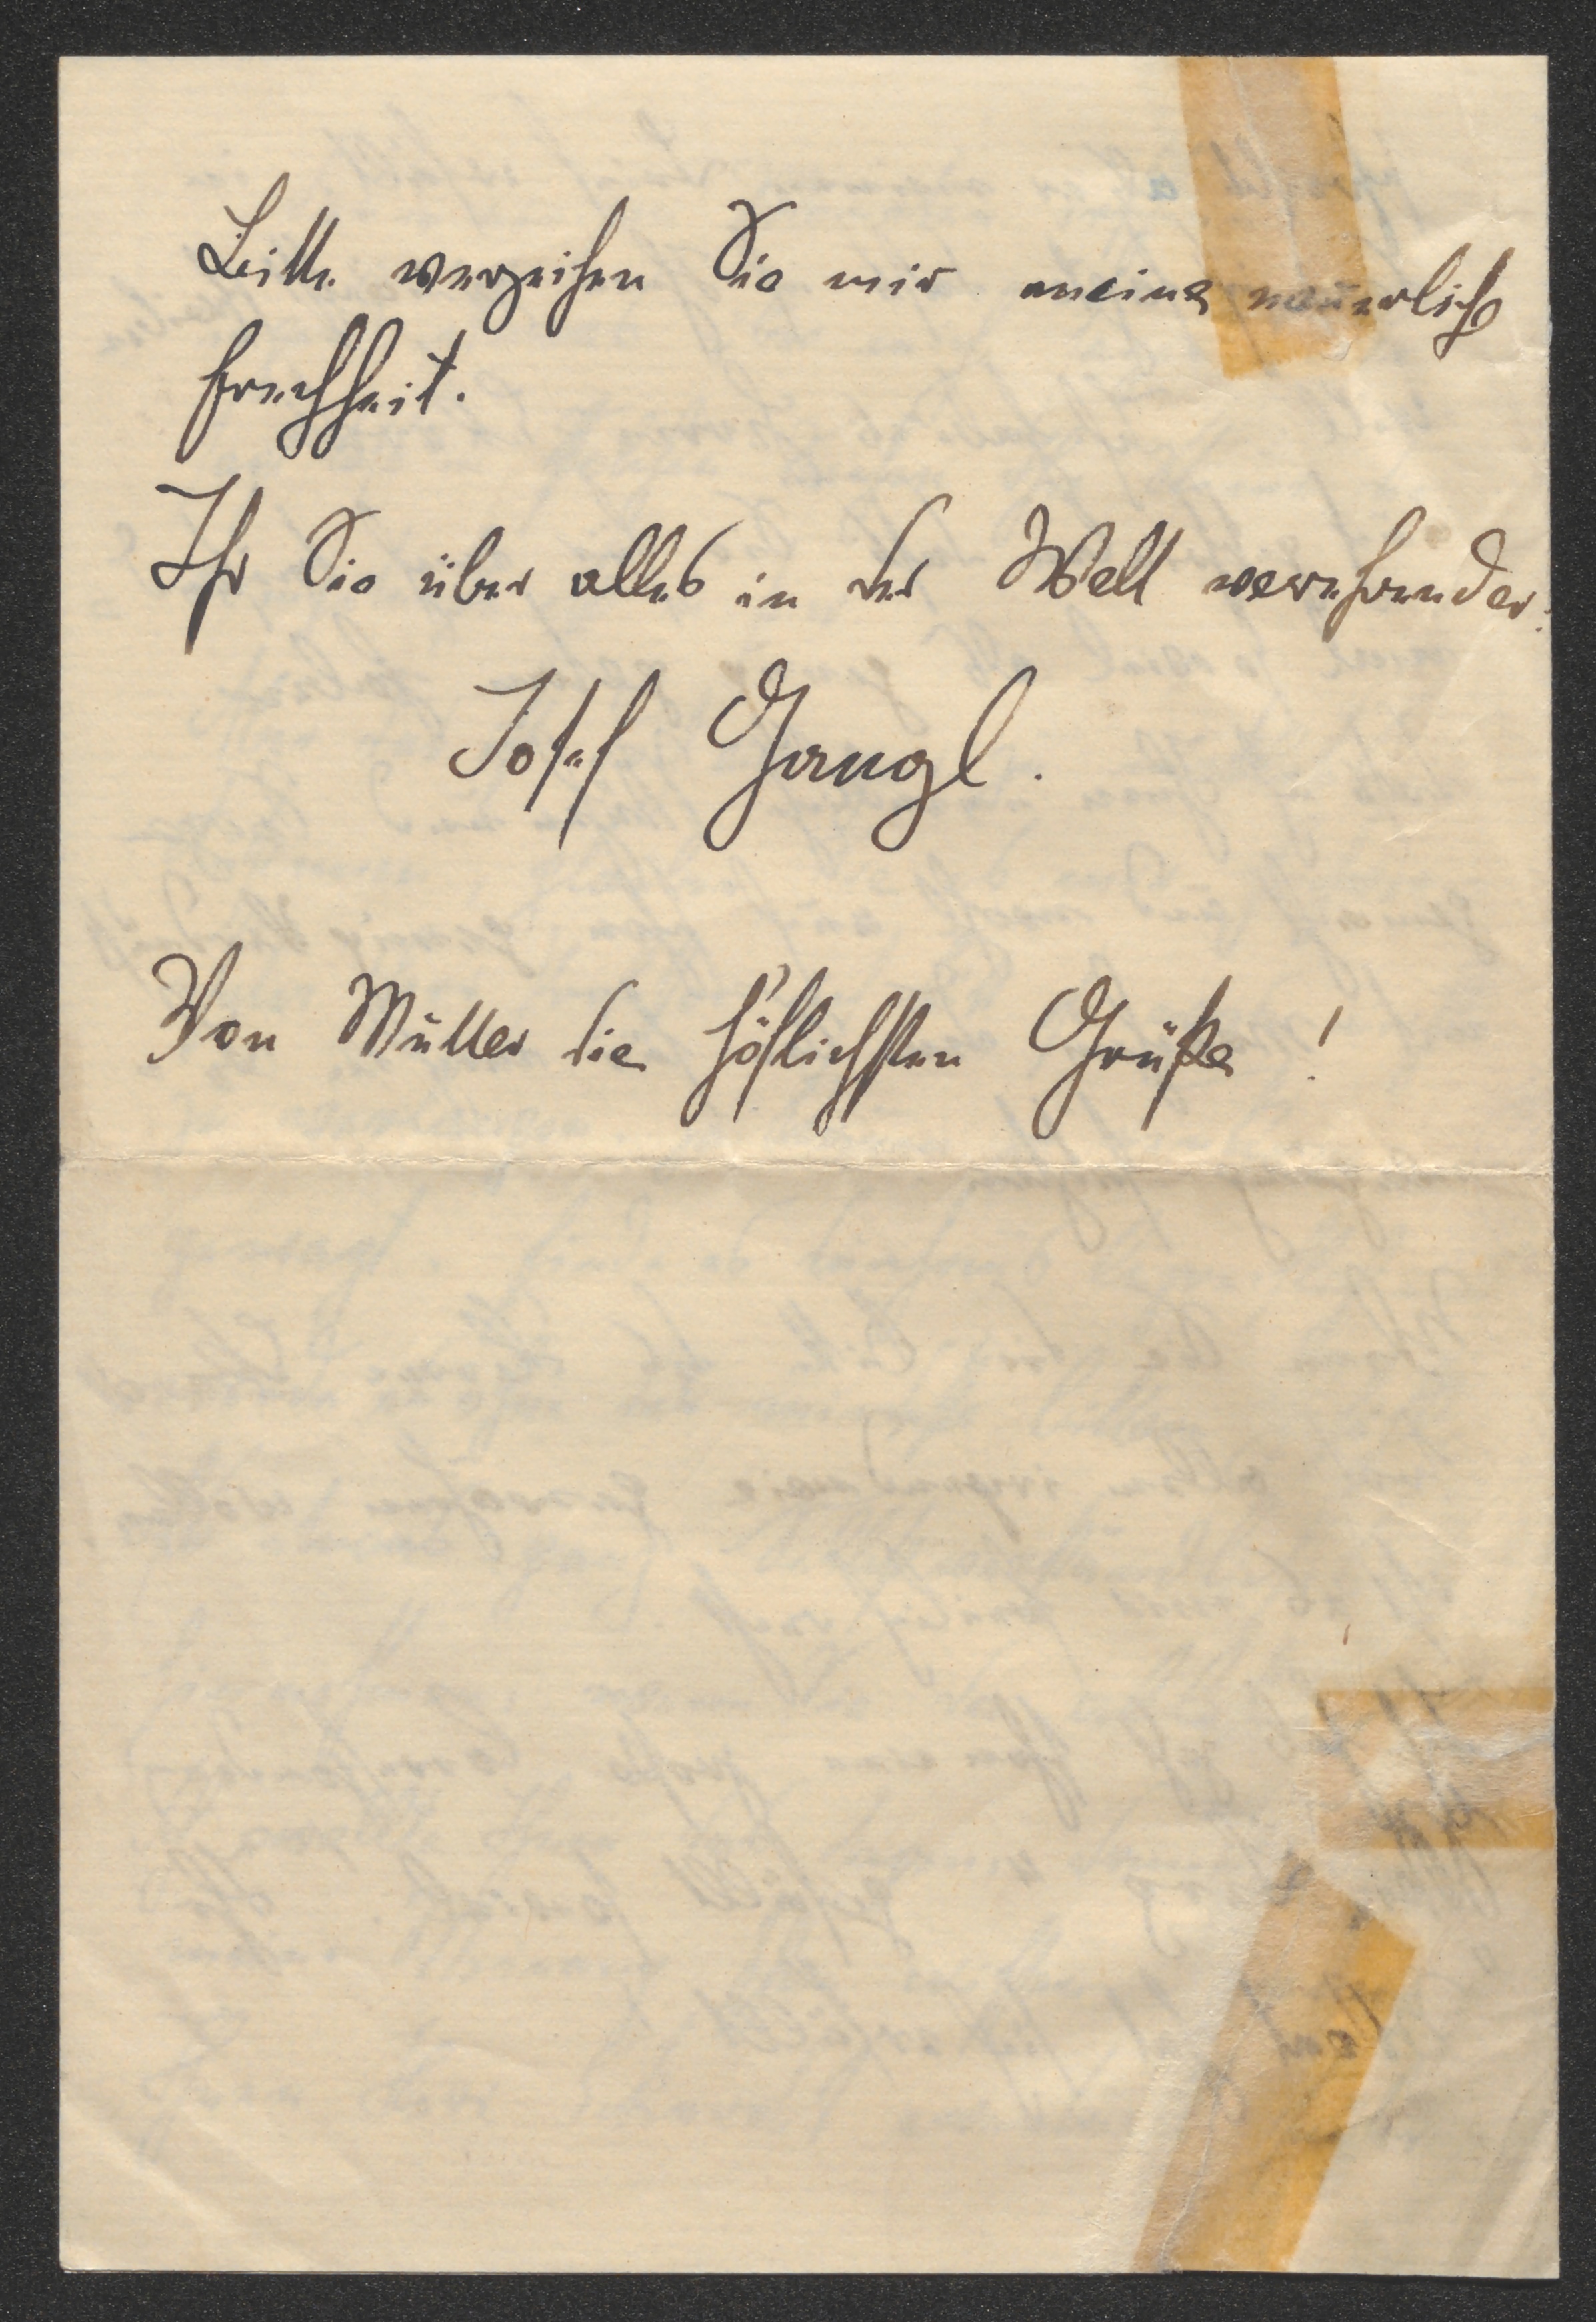 Bitte verzeihen Sie mir meine neuerliche
Frechheit.
Ihr Sie über alles in der Welt verehrender:
Josef Gangl.
Von Mutter die höflichsten Grüße!